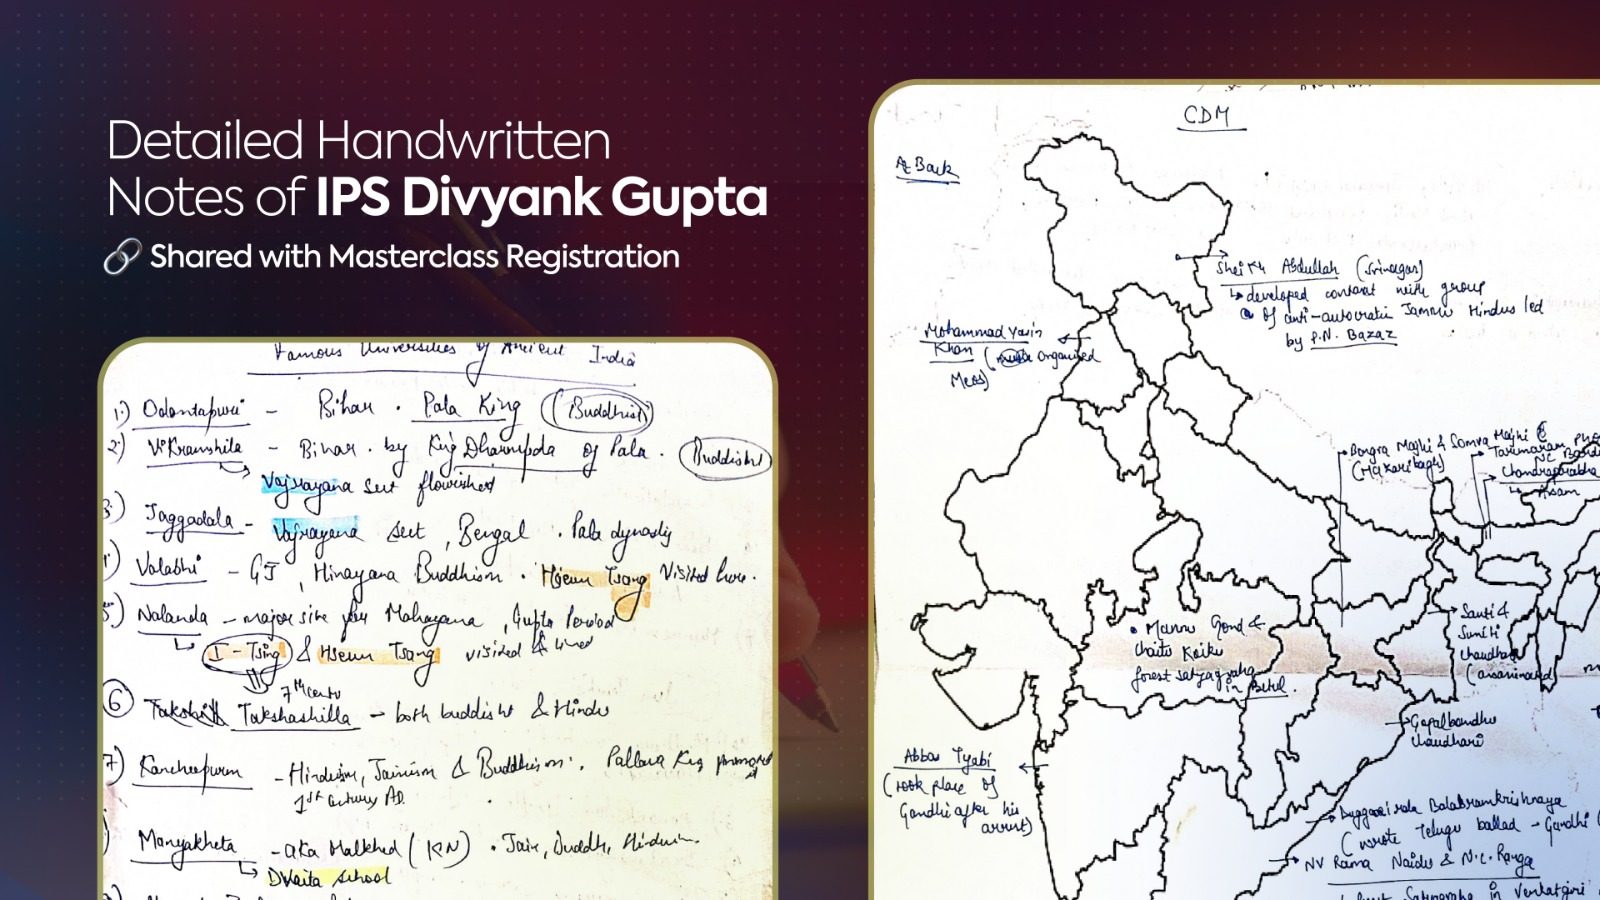 Detailed Handwritten
Notes of IPS Divyank Gupta
Shared with Masterclass Registration
Famous Universities of Ancient India
1.) Odantapuri - Bihar . Pala King (Buddhist)
2.) Vikramshila - Bihar . by King Dharmpda of Pala . Buddisht
Vajrayana sect flourished
3.) Jaggadala - Vajrayana sect , Bengal . Pala dynasty
Valabhi - GJ , Hinayana Buddhism . Hieun Tsang visited here .
5.) Nalanda - major site for Mahayana , Gupta Period
I-Tsing & Hseun Tsang visited & lived
7th
6 Takshashilla - both buddisht & Hindu
7) Kancheepurm - Hinduism, Jainism & Buddhism . Pallava King
1st century AD.
Manyakheta - aka Malkhed (KN) . Jain, Buddh, Hinduism
Dvaita school
CDM
At Back
Sheikh Abdullah (Srinagar)
developed contact with group
of anti-autocratic Jammu Hindus led
by P.N. Bazaz
Mohammad Yasin
Khan ( organised
Meos)
Bongra Majhi & Somra Majhi
(Hazaribagh)
Chandraprabha
Assam
Mannu Gond &
Chaitu Koiku
forest satyagraha
in Betul .
Santi &
Suniti
Chaudhari
(assasinated
Gopalbandhu
Chaudhari
Abbas Tyabi
(took place of
Gandhi after his
arrest)
Duggirala Balakramkrishnaya
(wrote Telugu ballad - Gandhi
NV Rama Naidu & N.C. Ranga
forest Satyagraha in Venkatgiri